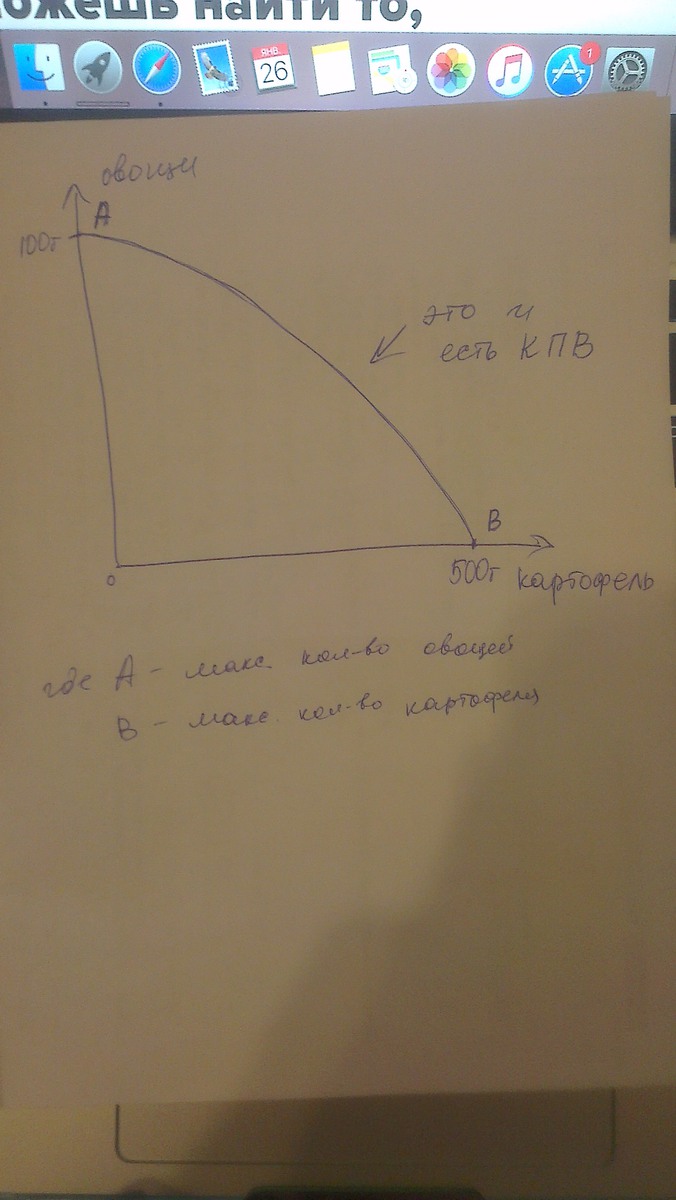 ожешь найти то,
ЯНВ.
26
1
овощи
A
100т
это и
есть КПВ
B
0
500т картофель
где A - макс. кол-во овощей
B - макс. кол-во картофеля